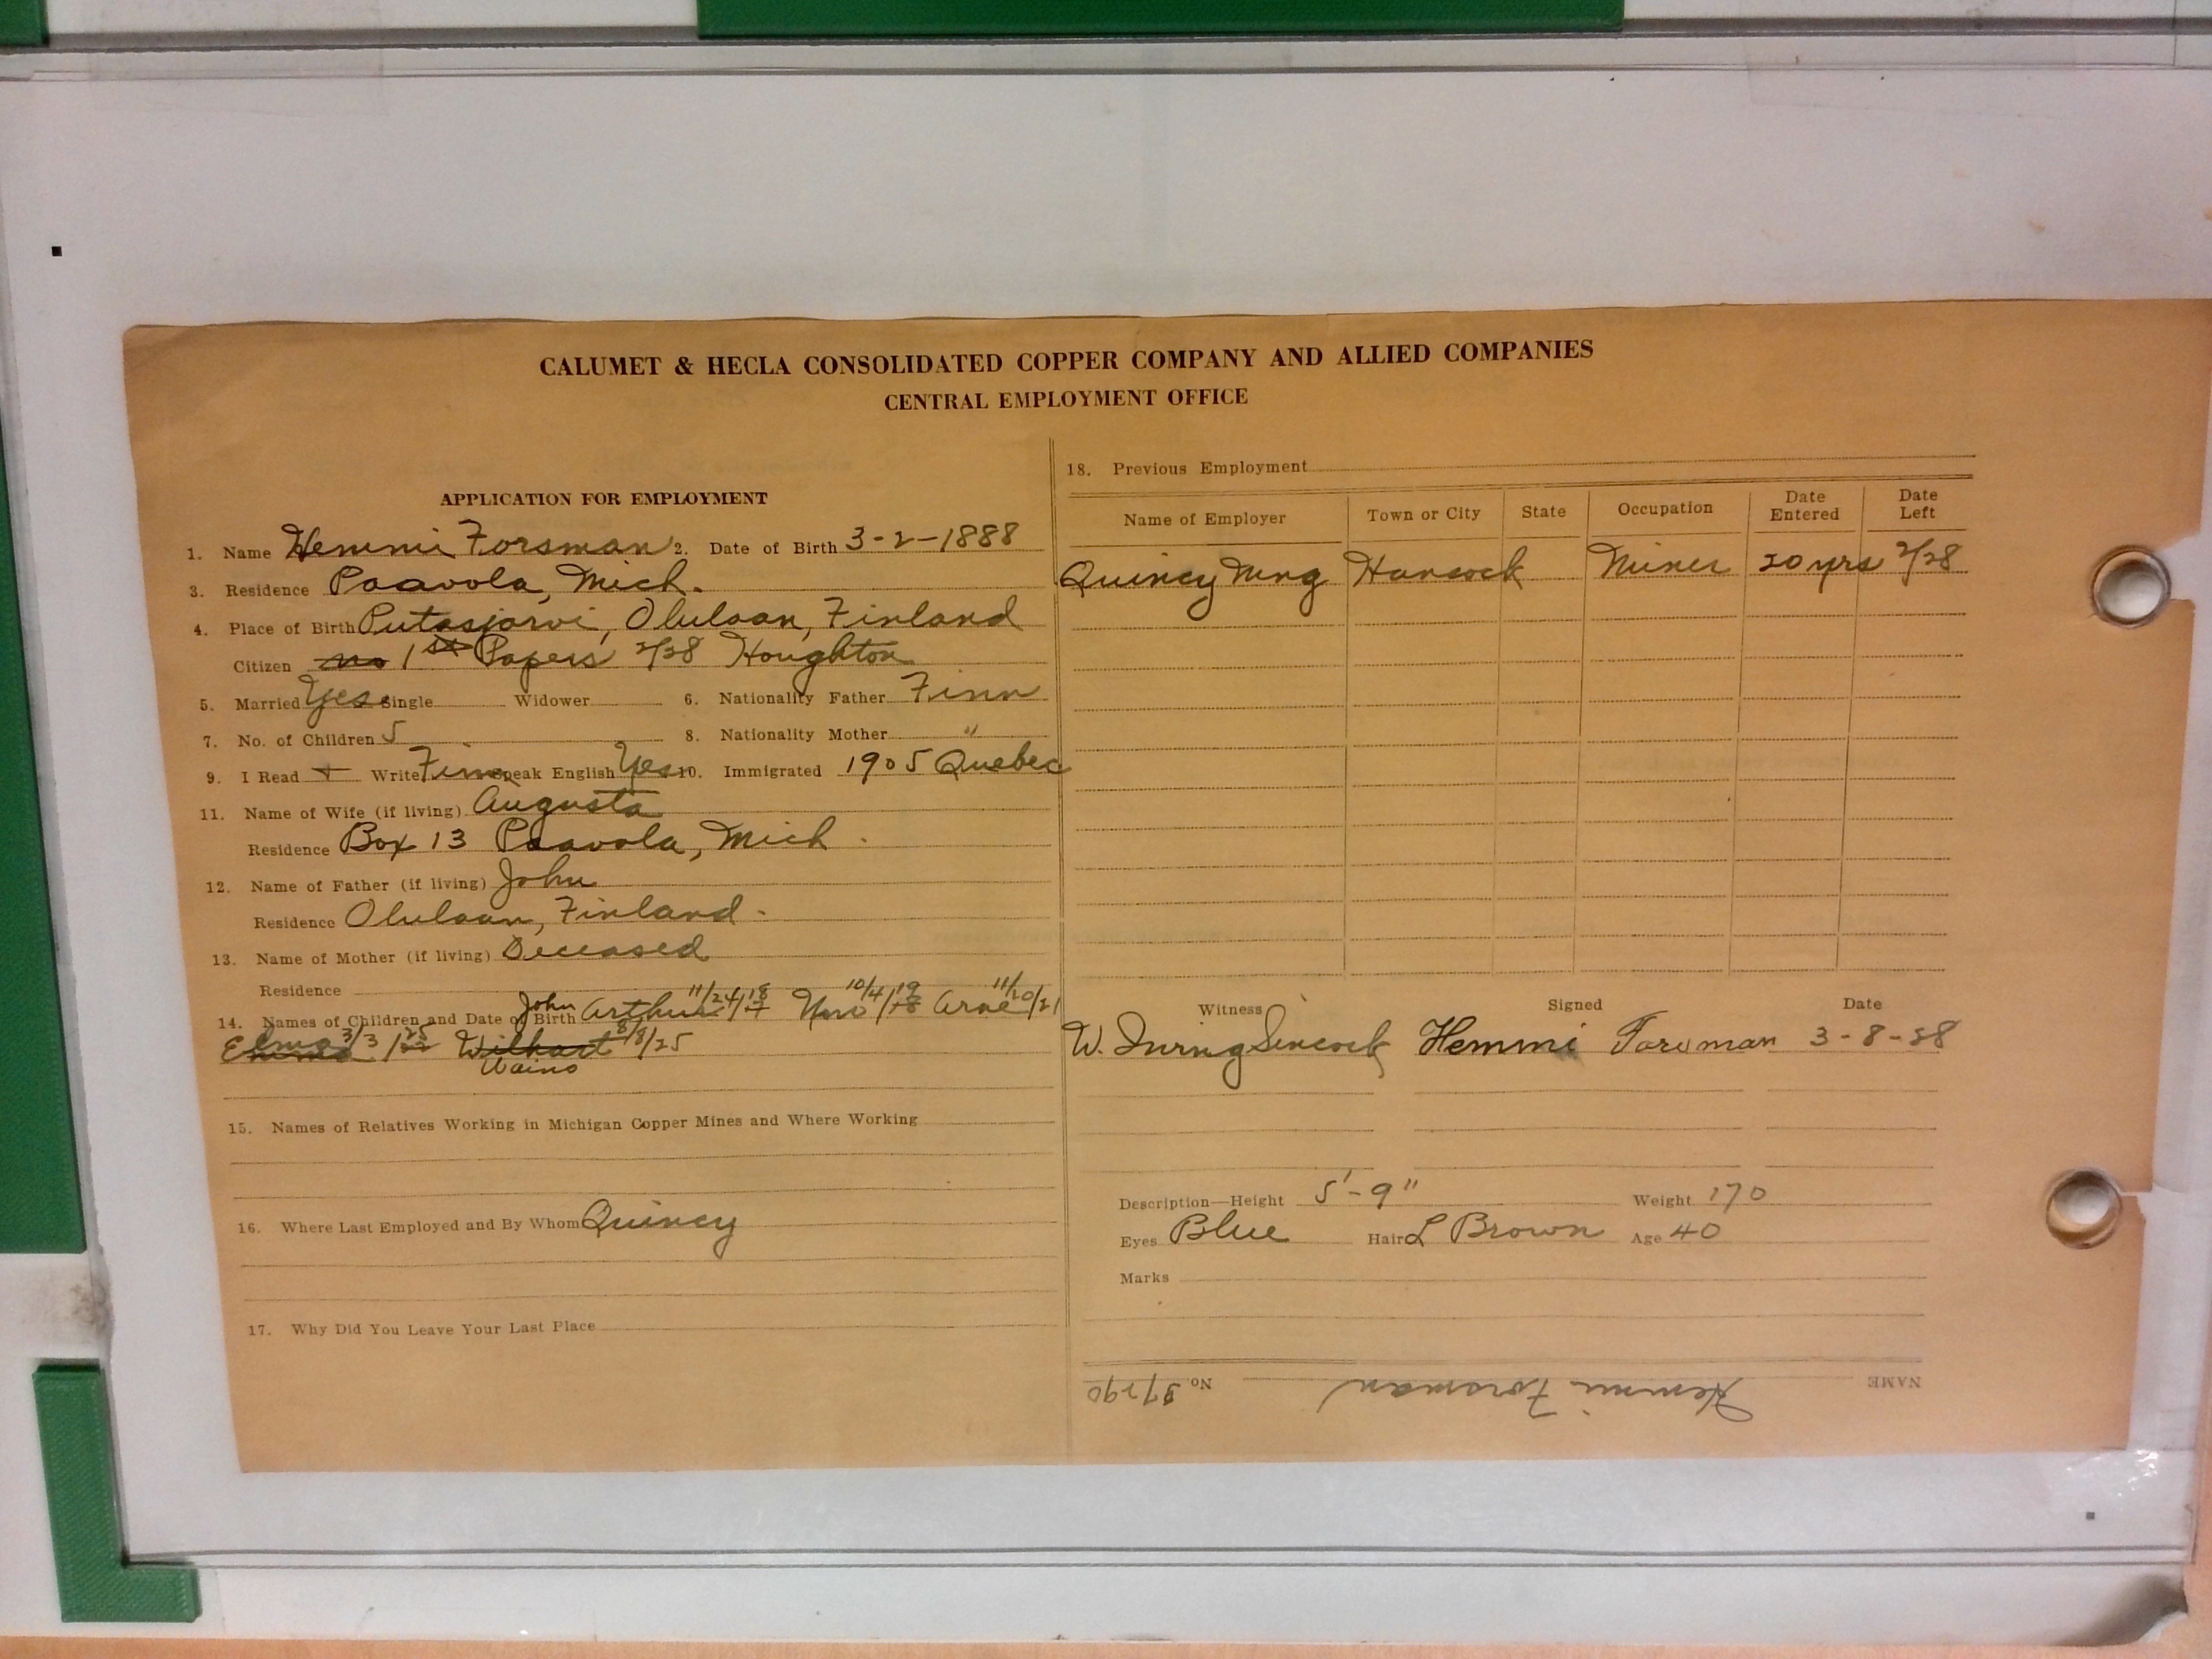 CALUMET & HECLA CONSOLIDATED COPPER COMPANY AND ALLIED COMPANIES
CENTRAL EMPLOYMENT OFFICE
APPLICATION FOR EMPLOYMENT
1. Name Hemmi Forsman 2. Date of Birth 3-2-1888
3. Residence Paavola, Mich.
4. Place of Birth Putasjarvi, Olulaan, Finland
Citizen no 1st Papers 2/28 Houghton
5. Married Yes Single Widower 6. Nationality Father Finn
7. No. of Children 5 8. Nationality Mother "
9. I Read + Write Finn Speak English Yes 10. Immigrated 1905 Quebec
11. Name of Wife (if living) Augusta
Residence Box 13 Paavola, Mich.
12. Name of Father (if living) John
Residence Olulaan, Finland.
13. Name of Mother (if living) Deceased
Residence
14. Names of Children and Date of Birth John Arthur 11/24/18 10/4/19 Arne 11/20/21
Elma 3/3/25 Wilhart 8/8/25
Waino
15. Names of Relatives Working in Michigan Copper Mines and Where Working
16. Where Last Employed and By Whom Quincy
17. Why Did You Leave Your Last Place
18. Previous Employment
Name of Employer Town or City State Occupation Date Entered Date Left
Quincy Mng Hancock Miner 20 yrs 2/28
Witness Signed Date
W. Irving Sincock Hemmi Forsman 3-8-28
Description—Height 5'-9" Weight 170
Eyes Blue Hair L Brown Age 40
Marks
NAME Hemmi Forsman No.